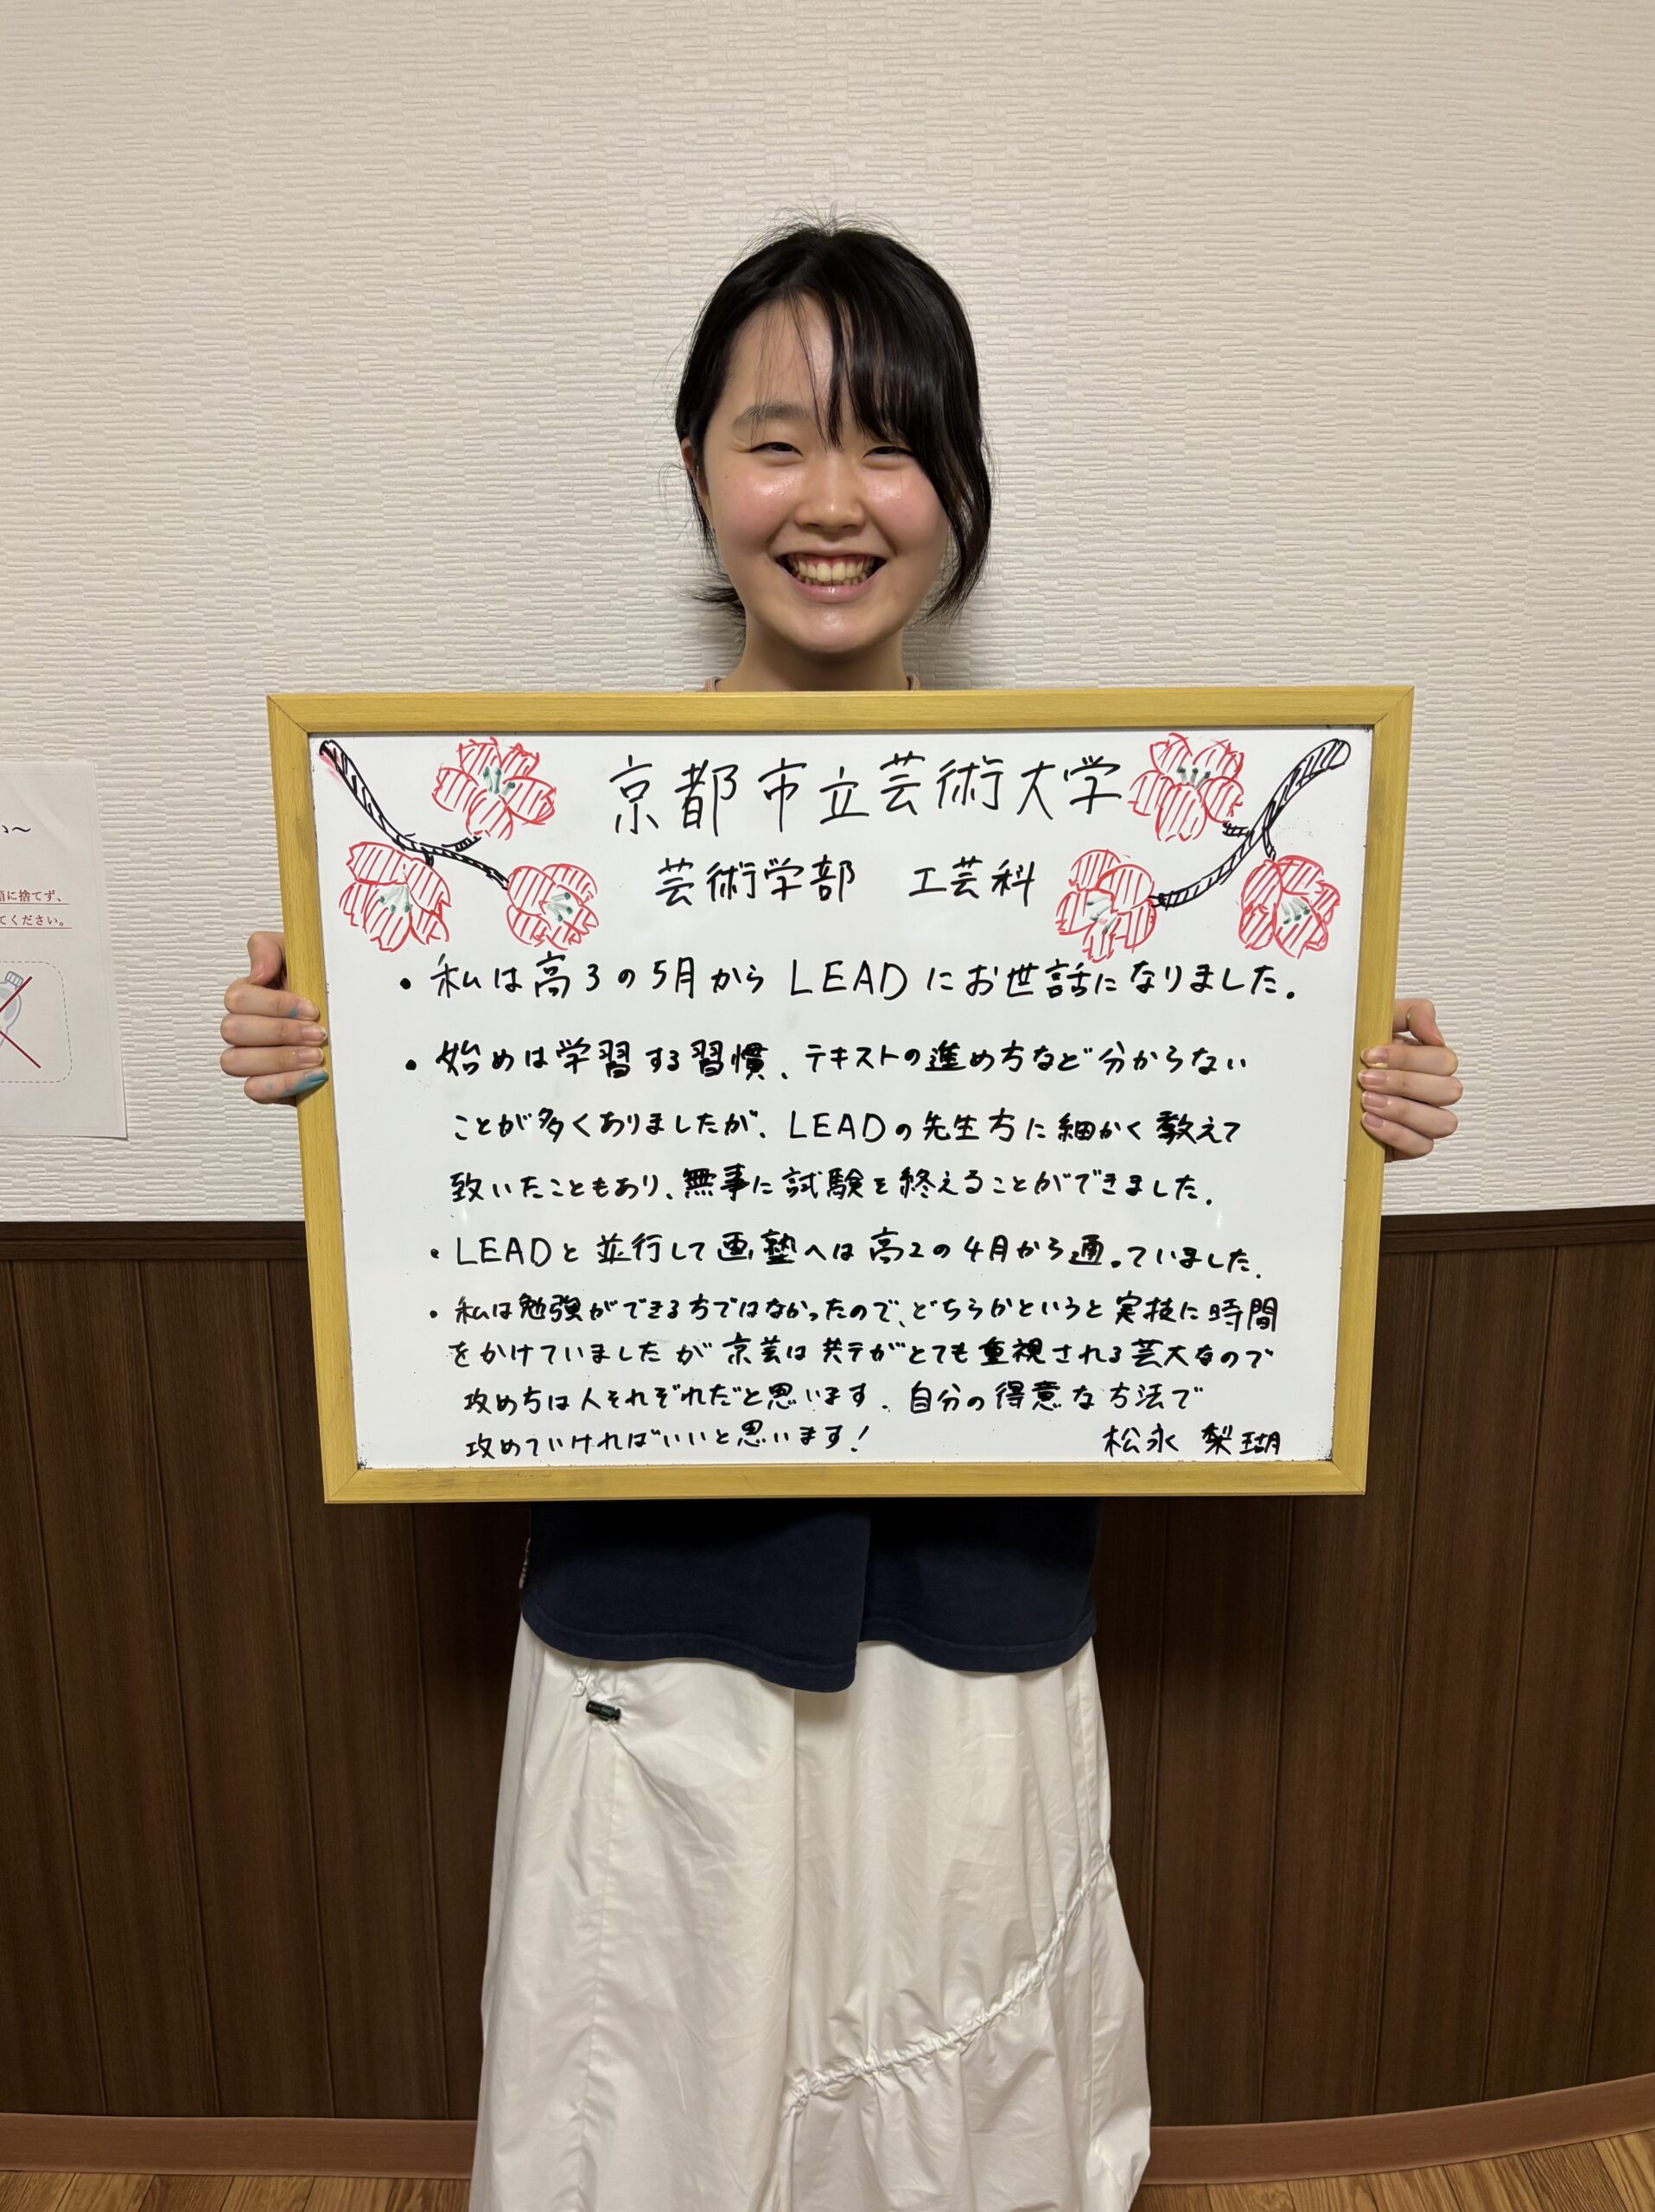 京都市立芸術大学
芸術学部 工芸科
・私は高3の5月からLEADにお世話になりました。
・始めは学習する習慣、テキストの進め方など分からない
ことが多くありましたが、LEADの先生方に細かく教えて
致いたこともあり、無事に試験を終えることができました。
・LEADと並行して画塾へは高2の4月から通っていました。
・私は勉強ができる方ではなかったので、どちらかというと実技に時間
をかけていましたが京芸は共テがとても重視される芸大なので
攻め方は人それぞれだと思います。自分の得意な方法で
攻めていければいいと思います!
松永 梨瑚
に捨てず、
てください。